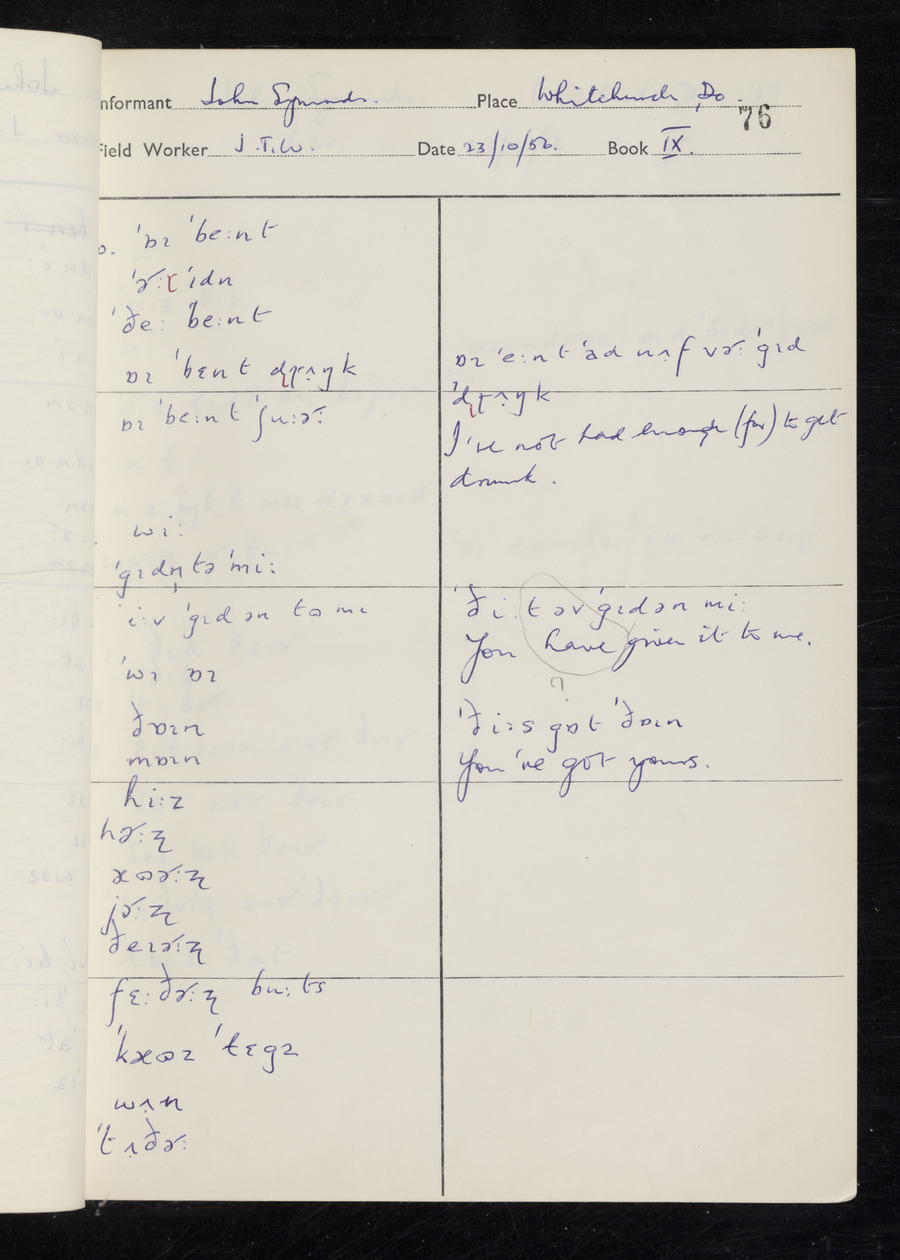 nformant John Symonds. Place Whitchurch, Do.
76
Field Worker J.T.W. Date 23/10/56. Book IX.
ˈɒɪ ˈbeːnt
ˈɚːɽ ˈɪdn
ˈðeː beːnt
ɒɪ ˈbɛnt ɖɽʌ̣ŋk
ɒɪ ˈbeːnt ʃuːɚː
wɪː
ˈɡɪdn̩ tə ˈmiː
iːv ˈɡɪdən tə mɪ
ˈwɪ ɒɪ
ðɒɪn
mɒɪn
hiːz
hɚːʐ
æʊɚːʐ
jɚːʐ
ðeɪɚːʐ
fɛːðɚːʐ buːts
ˈkæʊz ˈtɛɡz
wʌ̣n
ˈtʌ̣ðɚː
ɒɪ ˈeːnt ˈad nʌ̣f vɚː ˈɡɪd
ˈɖɽʌ̣ŋk
I've not had enough (for) to get
drunk.
ˈðiːt əv ˈɡɪdən miː
You have given it to me.
?
ˈðiːs ɡɒt ˈðɒɪn
You've got yours.